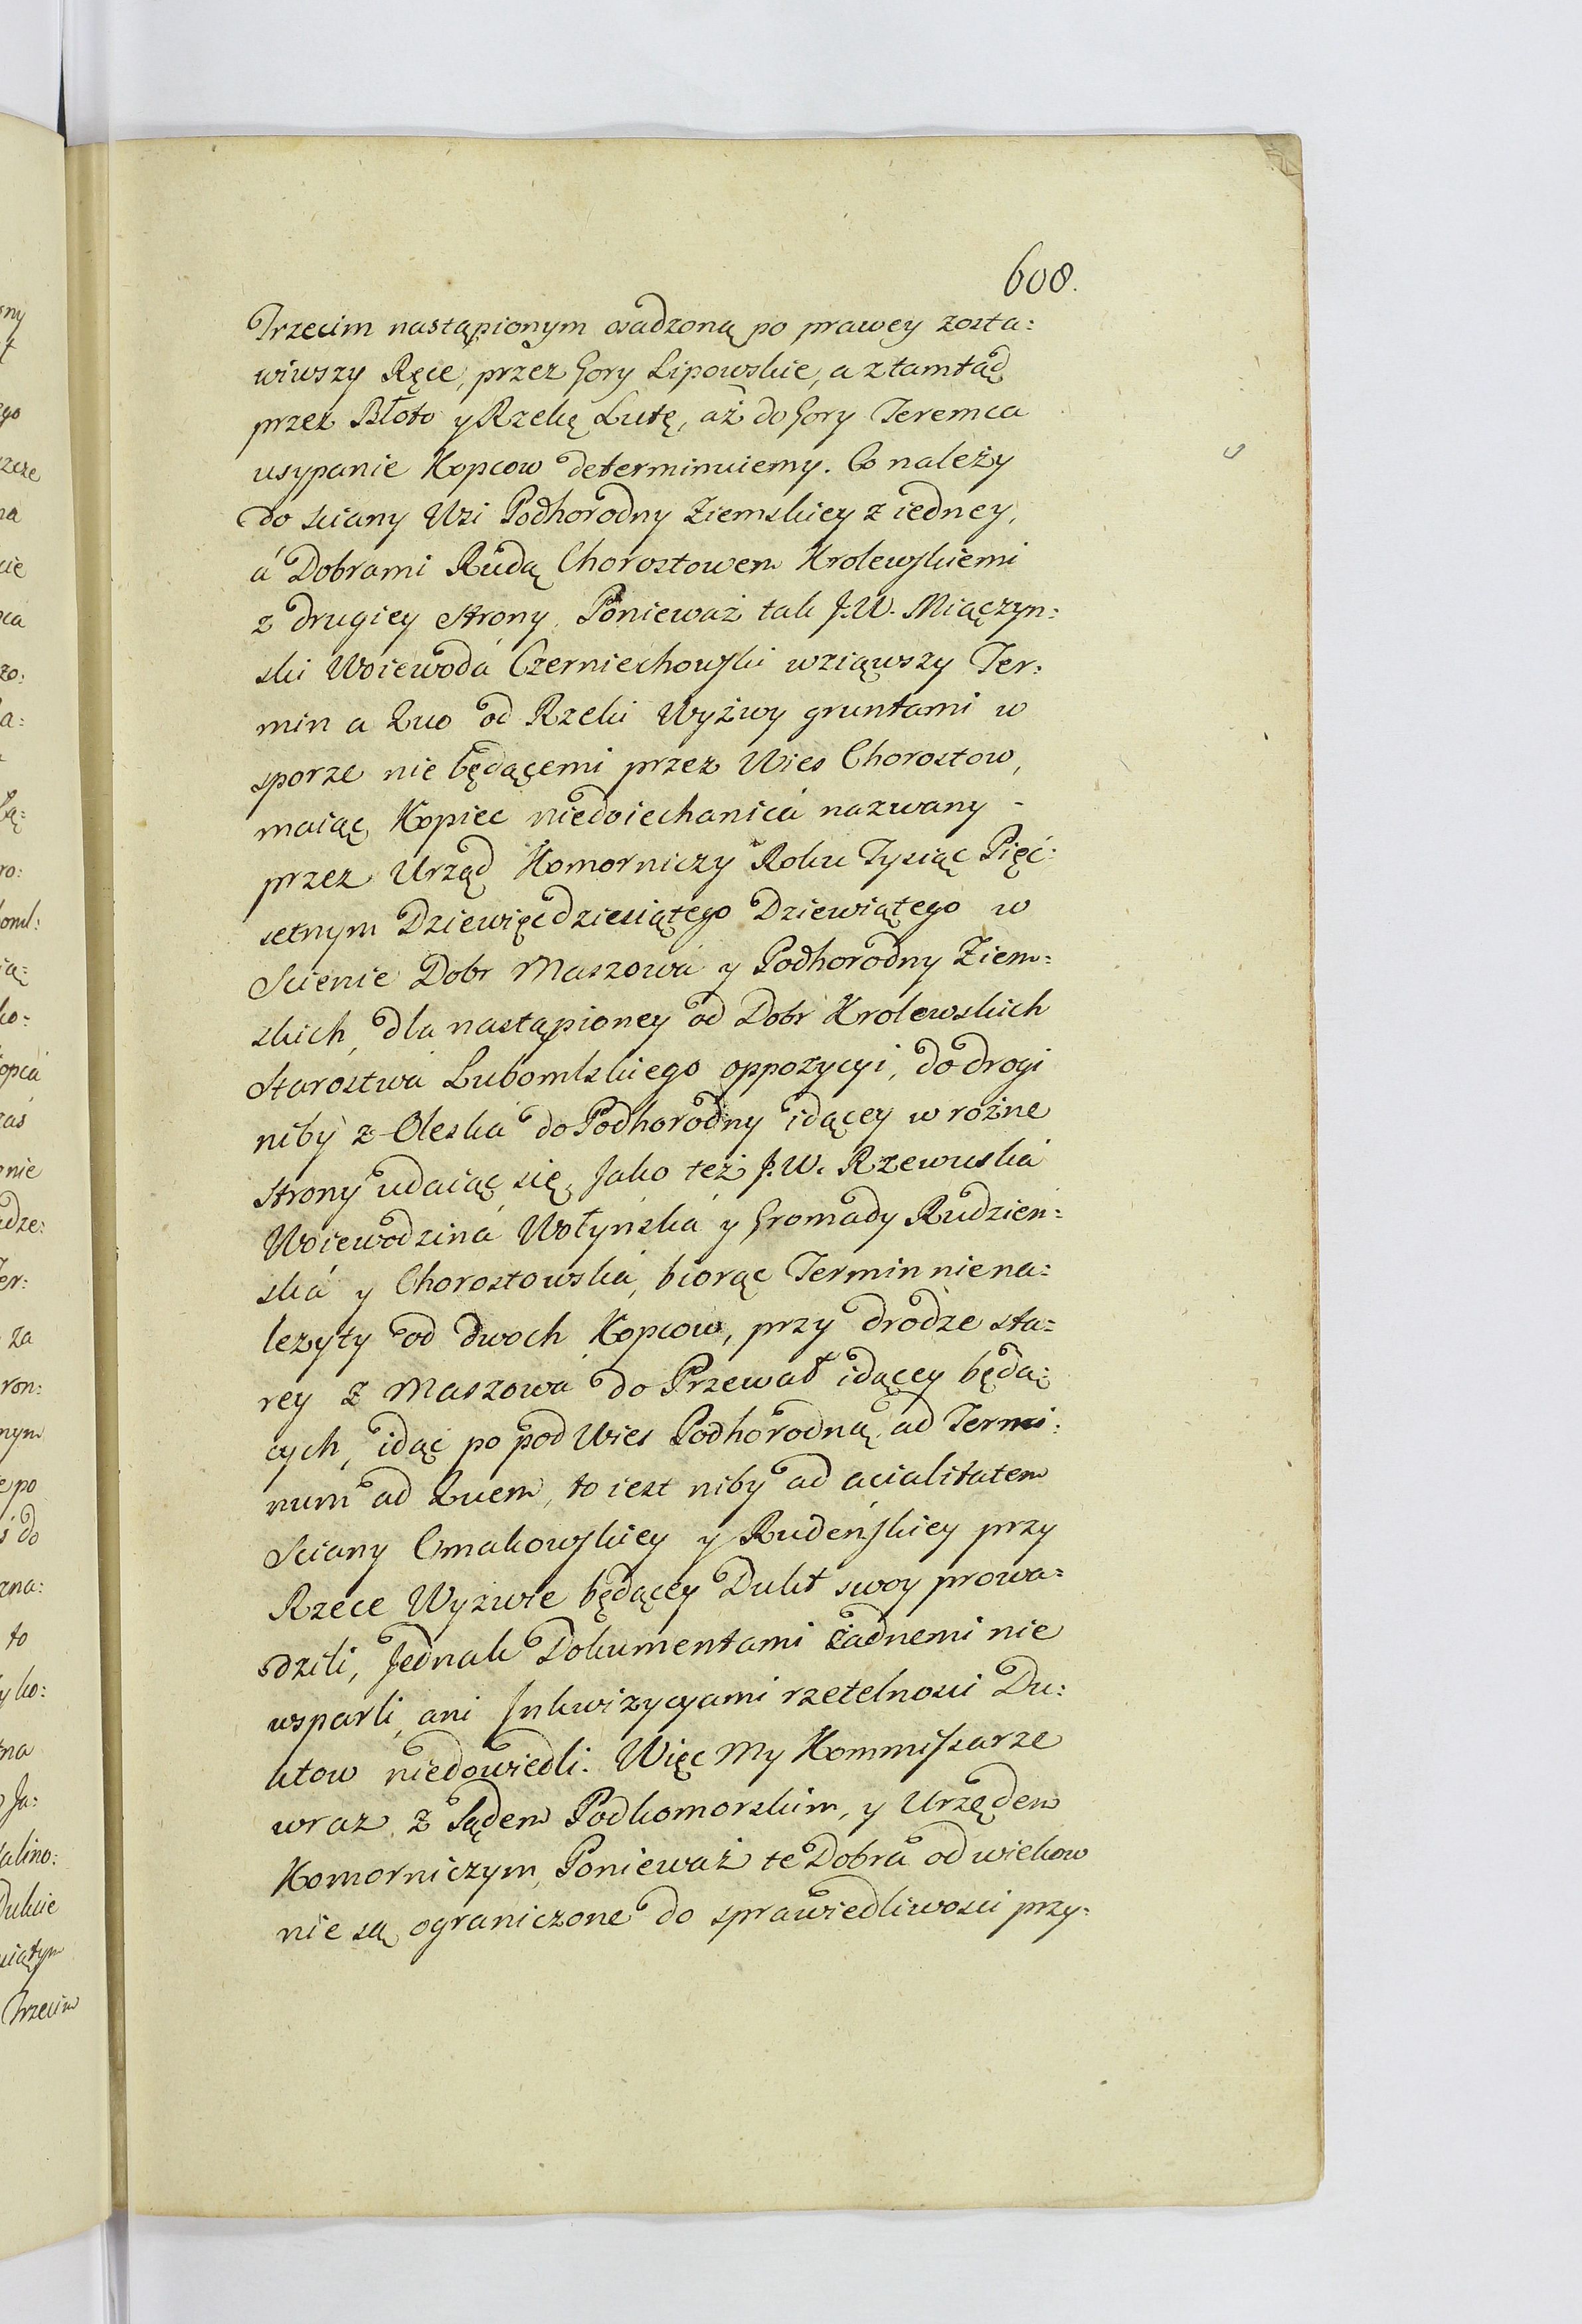 608.
Trzecim nastąpionym osadzoną po prawey zosta:
wiwszy Ręce, przez Gory Lipowskie, a ztamtąd
przez Błoto y Rzekę Lutę, aż do Gory Teremca
usypanie Kopcow determinuiemy. Co należy
do sciany Wsi Podhorodny Ziemskiey z iedney,
á Dobrami Rudą Chorostowem Krolewskiemi
z drugiey strony. Ponieważ tak J.W. Miączyn:
ski Woiewodá Czerniechowski wziąwszy Ter:
min a Quo od Rzeki Wyżwy gruntami w
sporze nie będącemi przez Wies Chorostow,
maiąc Kopiec niedoiechanicá nazwany -
przez Urząd Komorniczy Roku Tysiąc Pięć:
setnym Dziewięcdziesiątego Dziewiątego w
Scienie Dobr Maszowá y Podhorodny Ziem:
skich, dla nastąpioney od Dobr Krolewskich
Starostwá Lubomlskiego oppozycyi, do drogi
niby z Oleská do Podhorodny idącey w rożne
strony udaiąc się, Jako też J.W. Rzewuská
Woiewodziná Wołyńská y Gromady Rudzień:
ská y Chorostowská, biorąc Termin niena:
leżyty od dwoch Kopcow, przy drodze sta:
rey z Maszowá do Przewał idącey będą:
cych, idąc po pod Wies Podhorodną ad Termi:
num ad Quem, to iest niby ad acialitatem
Sciany Cmakowskiey y Rudeńskiey przy
Rzece Wyzwie będącey Dukt swoy prowa:
dzili, Jednak Dokumentami żadnemi nie
wsparli, ani Inkwizycyami rzetelnosci Du:
ktow niedowiedli. Więc My Kommissarze
wraz z Sądem Podkomorskim, y Urzędem
Komorniczym, Ponieważ te Dobrá od wiekow
nie są ograniczone do sprawiedliwosci przy: